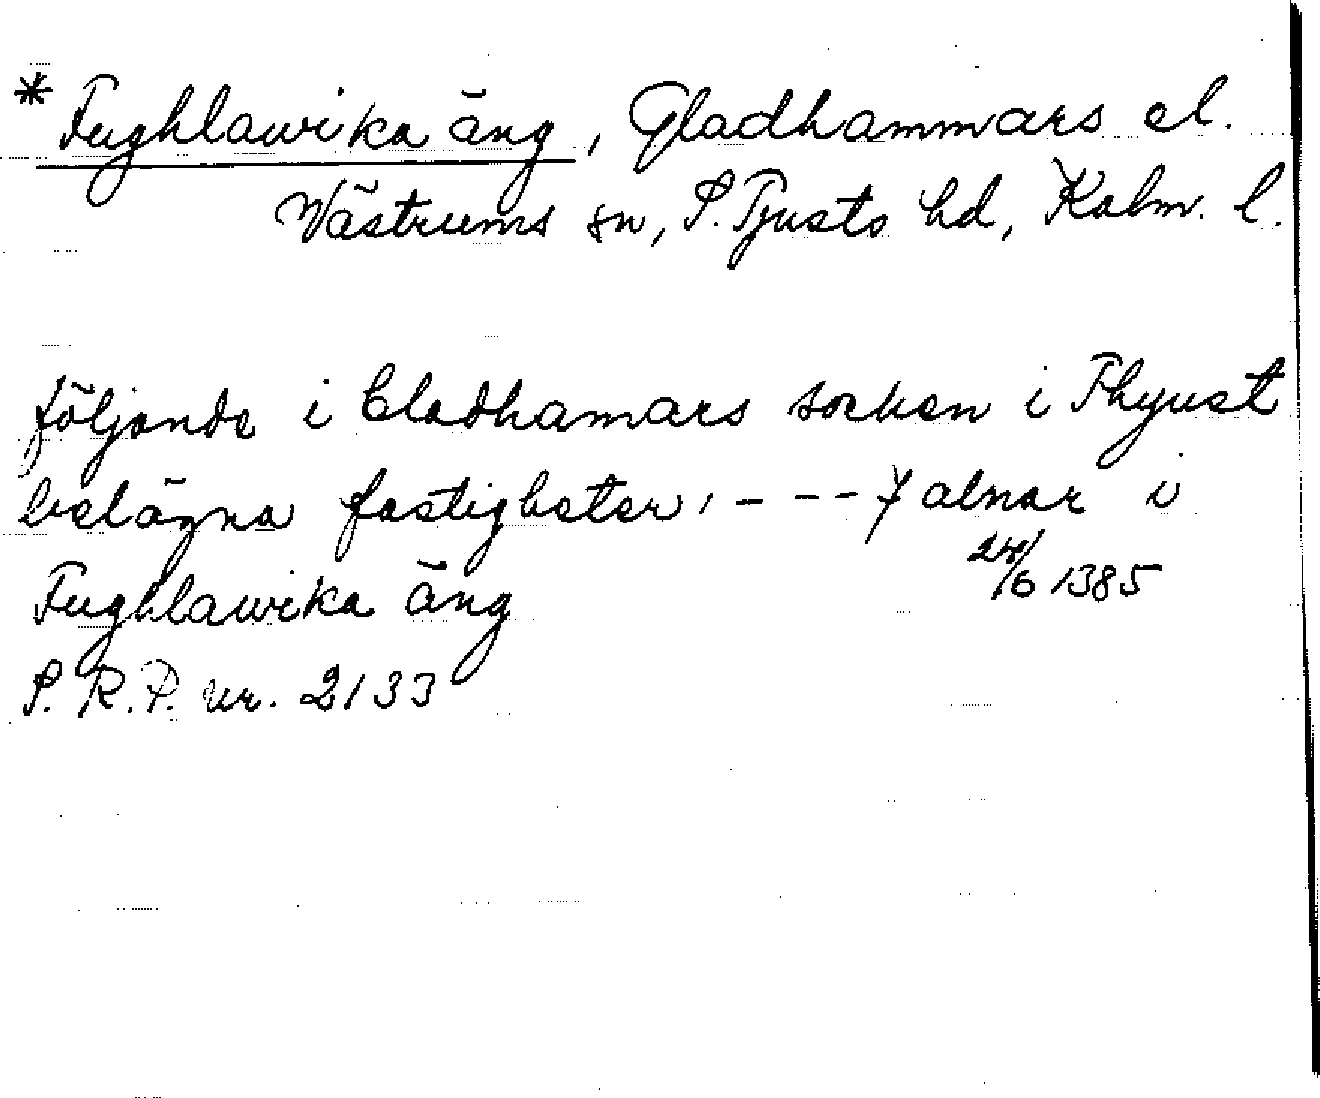 * Fughlawika äng, Gladhammars el.
Västrums sn, S. Tjusts hd, Kalm. l.
följande i Gladhamars socken i Thyust
belägna fastigheter, - - - 7 alnar i
Fughlawika äng 24/6 1385
S. R. P. nr. 2133